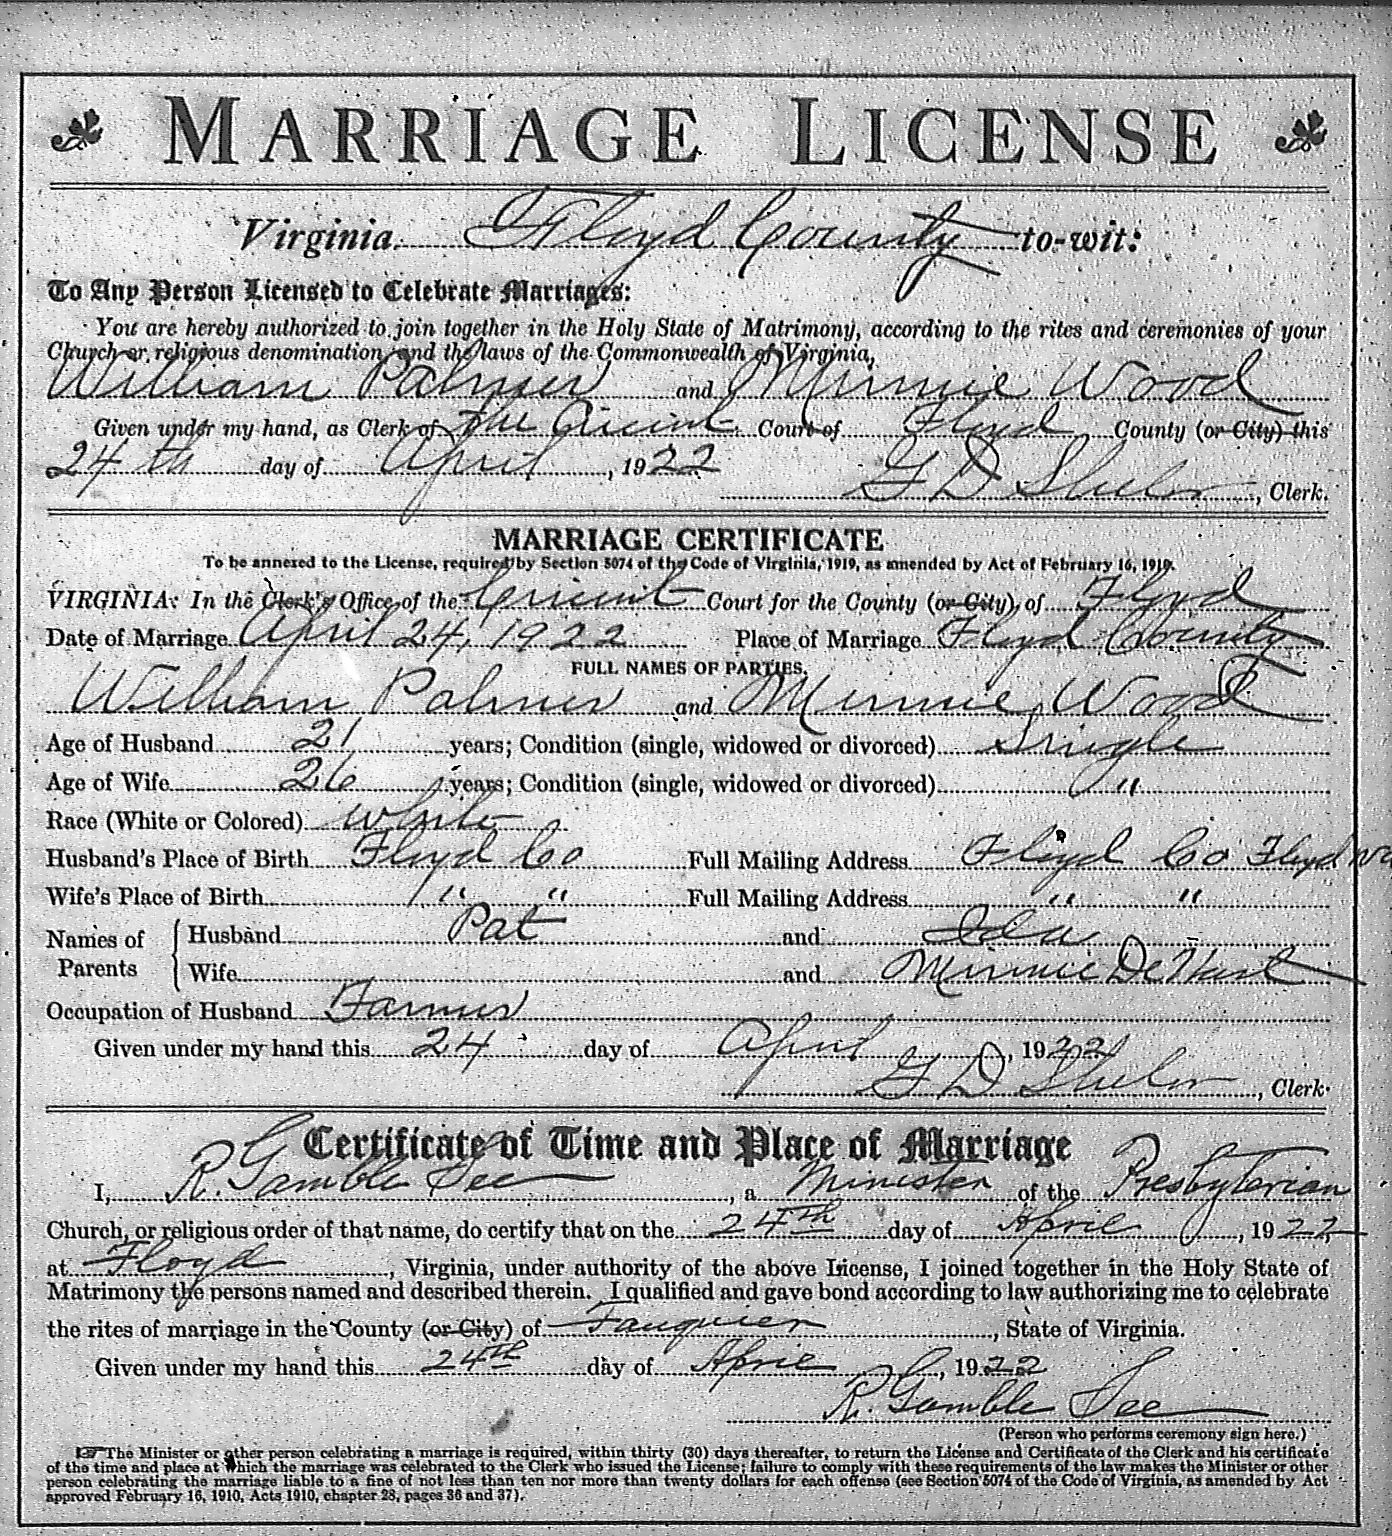 MARRIAGE LICENSE
Virginia. Floyd County to-wit:
To Any Person Licensed to Celebrate Marriages:
You are hereby authorized to join together in the Holy State of Matrimony, according to the rites and ceremonies of your
Church or religious denomination and the laws of the Commonwealth of Virginia,
William Palmer and Minnie Wood
Given under my hand, as Clerk of the Circuit Court of Floyd County (or City) this
24th day of April, 1922
G D Shelor, Clerk.
MARRIAGE CERTIFICATE
To be annexed to the License, required by Section 5074 of the Code of Virginia, 1919, as amended by Act of February 16, 1910.
VIRGINIA: In the Clerk's Office of the Circuit Court for the County (or City) of Floyd
Date of Marriage April 24, 1922 Place of Marriage Floyd County
FULL NAMES OF PARTIES,
William Palmer and Minnie Wood
Age of Husband 21 years; Condition (single, widowed or divorced) Single
Age of Wife 26 years; Condition (single, widowed or divorced) "
Race (White or Colored) White
Husband's Place of Birth Floyd Co Full Mailing Address Floyd Co Floyd Va
Wife's Place of Birth " " Full Mailing Address " "
Names of Parents Husband Pat and Ida
Wife and Minnie DeHart
Occupation of Husband Farmer
Given under my hand this 24 day of April, 1922
G D Shelor, Clerk.
Certificate of Time and Place of Marriage
I, R. Gamble See, a Minister of the Presbyterian
Church, or religious order of that name, do certify that on the 24th day of April, 1922
at Floyd, Virginia, under authority of the above License, I joined together in the Holy State of
Matrimony the persons named and described therein. I qualified and gave bond according to law authorizing me to celebrate
the rites of marriage in the County (or City) of Fauquier, State of Virginia.
Given under my hand this 24th day of April, 1922
R. Gamble See
(Person who performs ceremony sign here.)
☞ The Minister or other person celebrating a marriage is required, within thirty (30) days thereafter, to return the License and Certificate of the Clerk and his certificate
of the time and place at which the marriage was celebrated to the Clerk who issued the License; failure to comply with these requirements of the law makes the Minister or other
person celebrating the marriage liable to a fine of not less than ten nor more than twenty dollars for each offense (see Section 5074 of the Code of Virginia, as amended by Act
approved February 16, 1910, Acts 1910, chapter 28, pages 36 and 37).